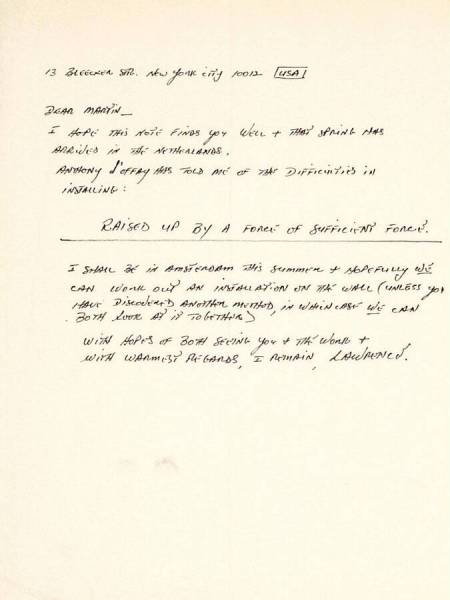 13 BLEECKER STR. NEW YORK CITY 10012 USA
DEAR MARTIN_
I HOPE THIS NOTE FINDS YOU WELL + THAT SPRING HAS
ARRIVED IN THE NETHERLANDS.
ANTHONY d'OFFAY HAS TOLD ME OF THE DIFFICULTIES IN
INSTALLING:
RAISED UP BY A FORCE OF SUFFICIENT FORCE.
I SHALL BE IN AMSTERDAM THIS SUMMER + HOPEFULLY WE
CAN WORK OUT AN INSTALLATION ON THE WALL (UNLESS YOU
HAVE DISCOVERED ANOTHER METHOD, IN WHICH CASE WE CAN
BOTH LOOK AT IT TOGETHER)
WITH HOPES OF BOTH SEEING YOU + THE WORK +
WITH WARMEST REGARDS, I REMAIN, LAWRENCE.